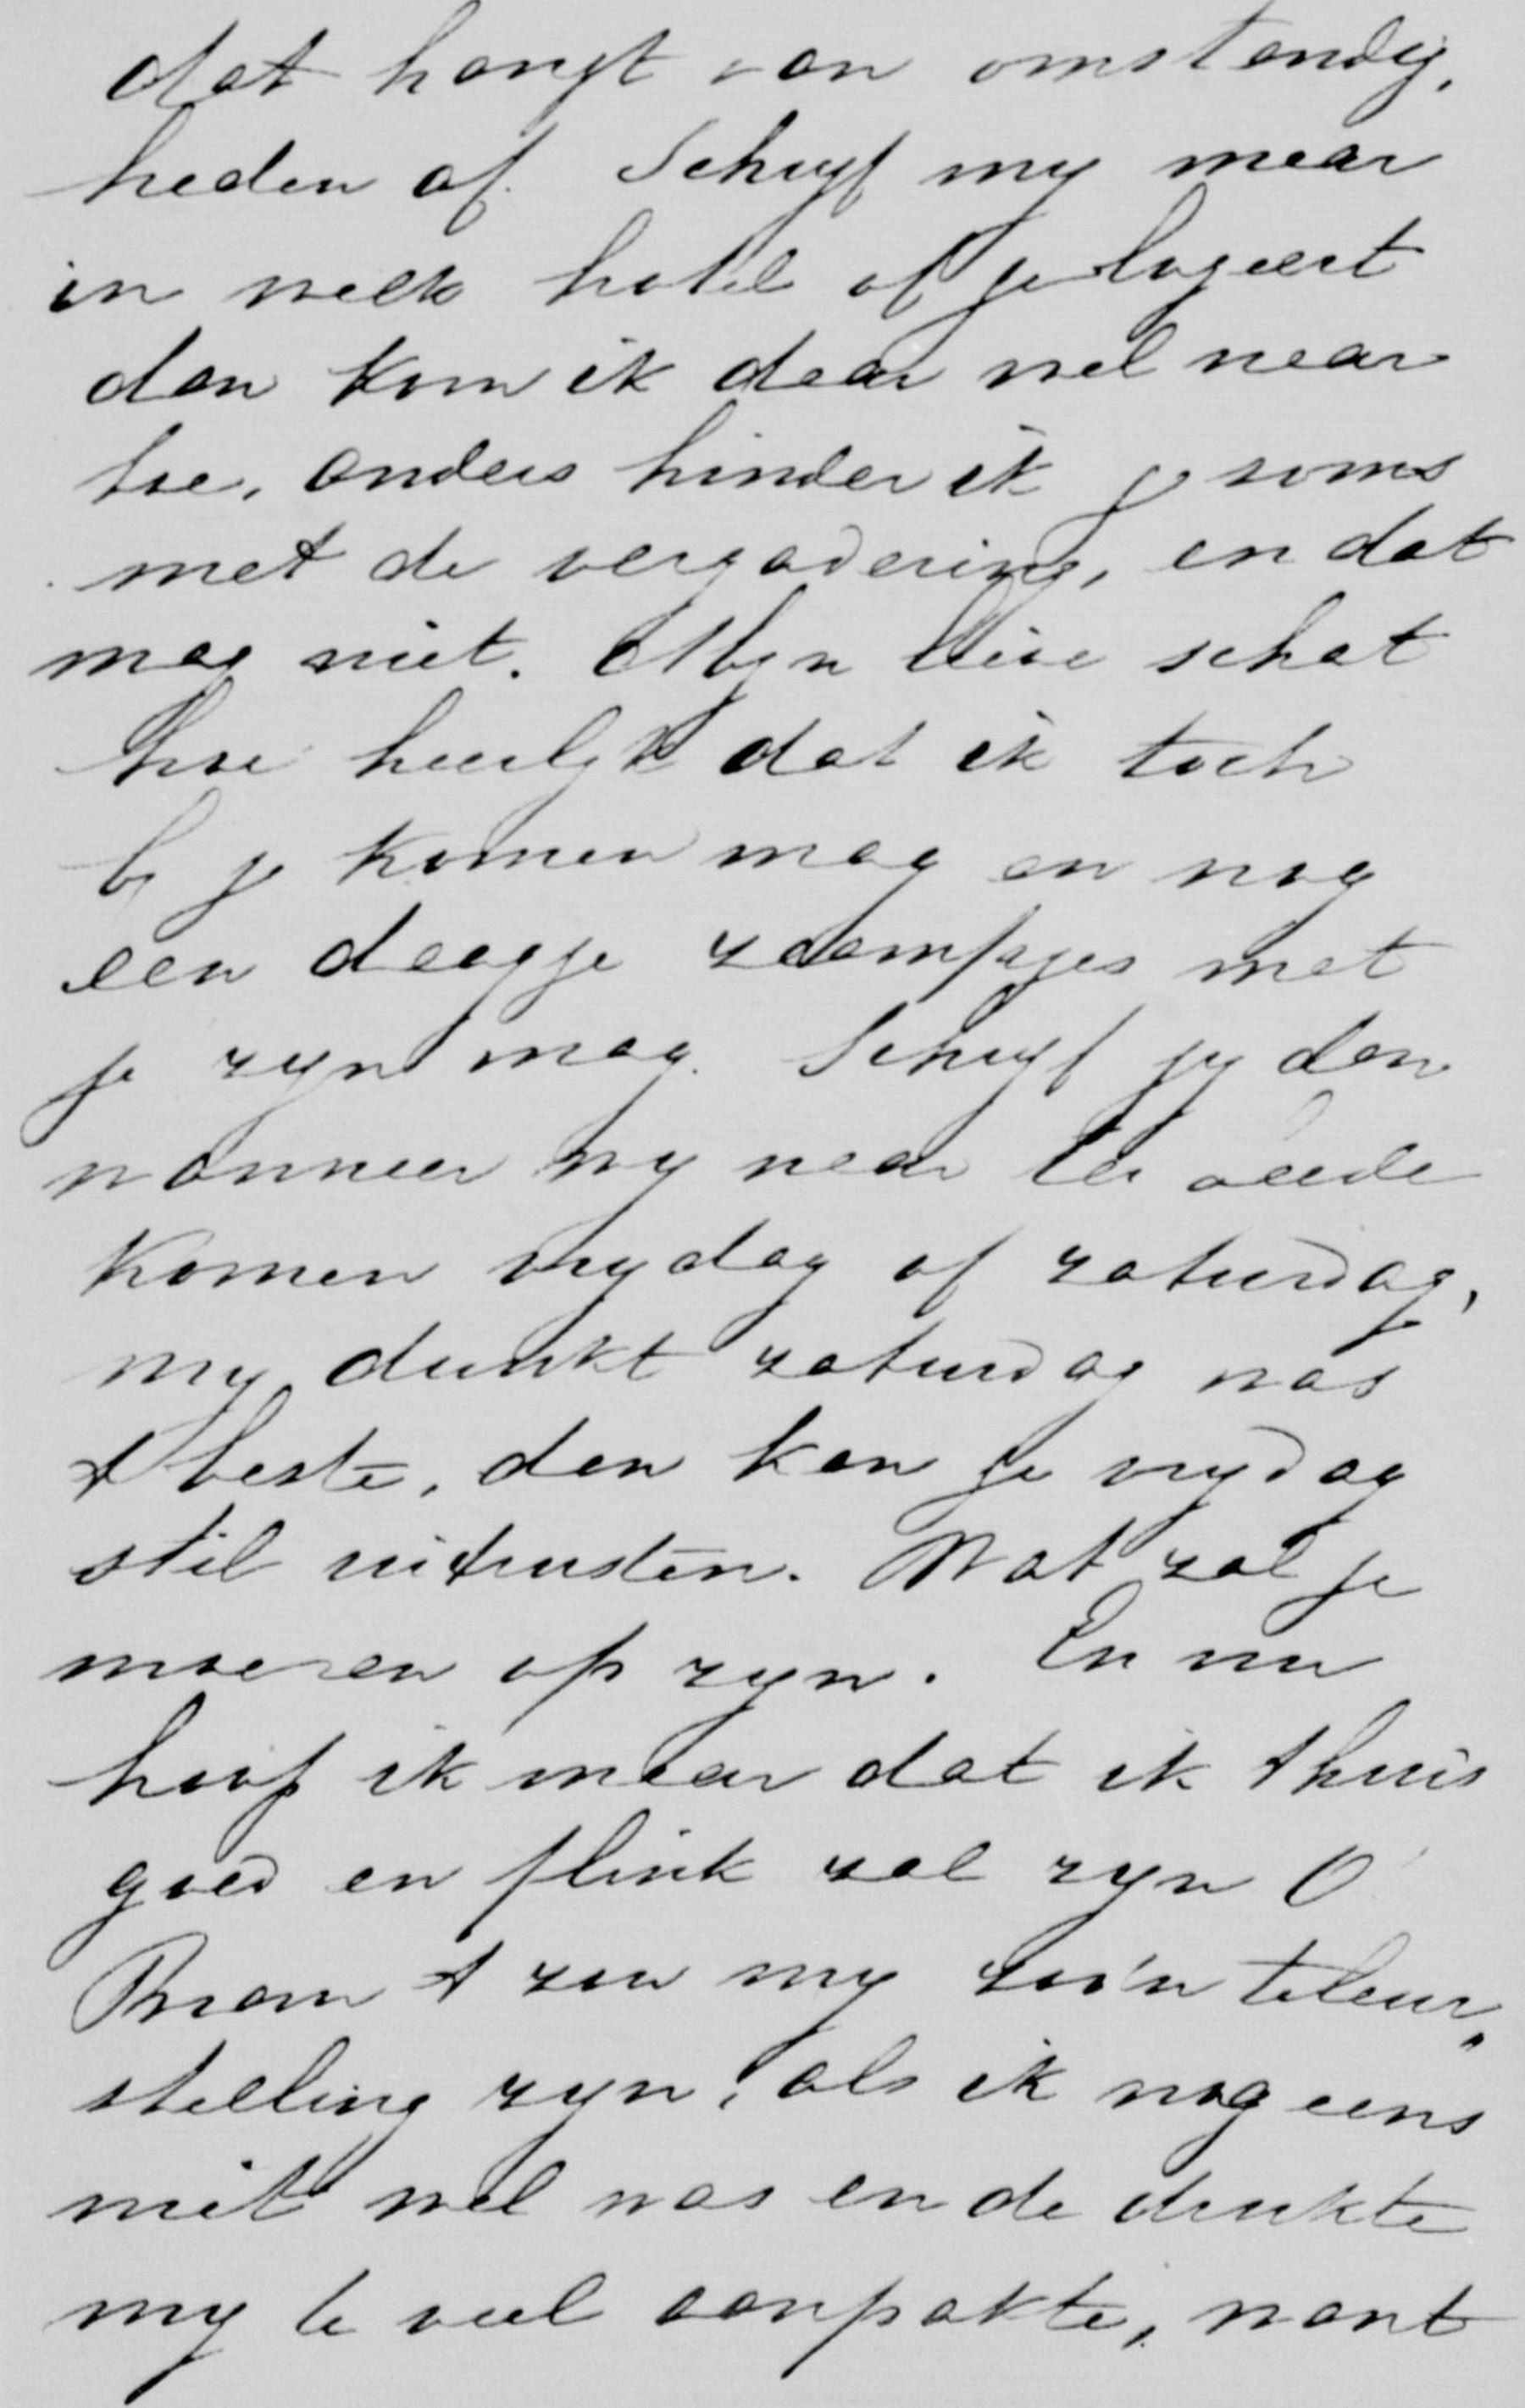 dat hangt van omstandig,
heden af. Schryf my maar
in welk hotel of je logeert
dan kom ik daar wel naar
toe, anders hinder ik je soms
met de vergadering, en dat
mag niet. Myn lieve schat
hoe heerlyk dat ik toch
by je komen mag en nog
een daagje zaampjes met
je zyn mag. Schryf jy dan
wanneer wy naar ter aarde
komen vrydag of zaturdag,
my dunkt zaturdag was
't beste, dan kan je vrydag
stil uitrusten. Wat zal je
moe en op zyn. En nu
hoop ik maar dat ik thuis
goed en flink zal zyn O
Bram 't zou my zoo'n teleur„
stelling zyn, als ik nog eens
niet wel was en de drukte
my te veel aanpakte, want